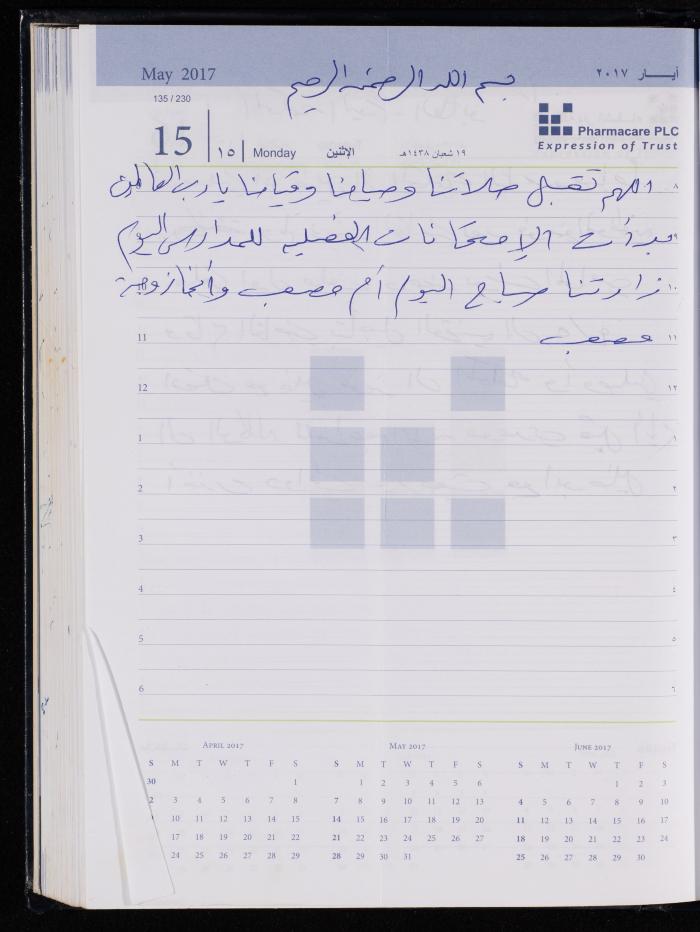 May 2017
أيـــار ٢٠١٧
بسم الله الرحمن الرحيم
135 / 230
15 ١٥ Monday الإثنين ١٩ شعبان ١٤٣٨هـ
Pharmacare PLC
Expression of Trust
اللهم تقبل صلاتنا وصيامنا وقيامنا يا رب العالمين ٨
بدأت الإمتحانات الفصلية للمدارس اليوم ٩
زارتنا صباح اليوم أم مصعب وأنجا زوجة ١٠
11 مصعب ١١
12 ١٢
1 ١
2 ٢
3 ٣
4 ٤
5 ٥
6 ٦
April 2017
S M T W T F S
30 1
2 3 4 5 6 7 8
10 11 12 13 14 15
17 18 19 20 21 22
24 25 26 27 28 29
May 2017
S M T W T F S
1 2 3 4 5 6
7 8 9 10 11 12 13
14 15 16 17 18 19 20
21 22 23 24 25 26 27
28 29 30 31
June 2017
S M T W T F S
1 2 3
4 5 6 7 8 9 10
11 12 13 14 15 16 17
18 19 20 21 22 23 24
25 26 27 28 29 30